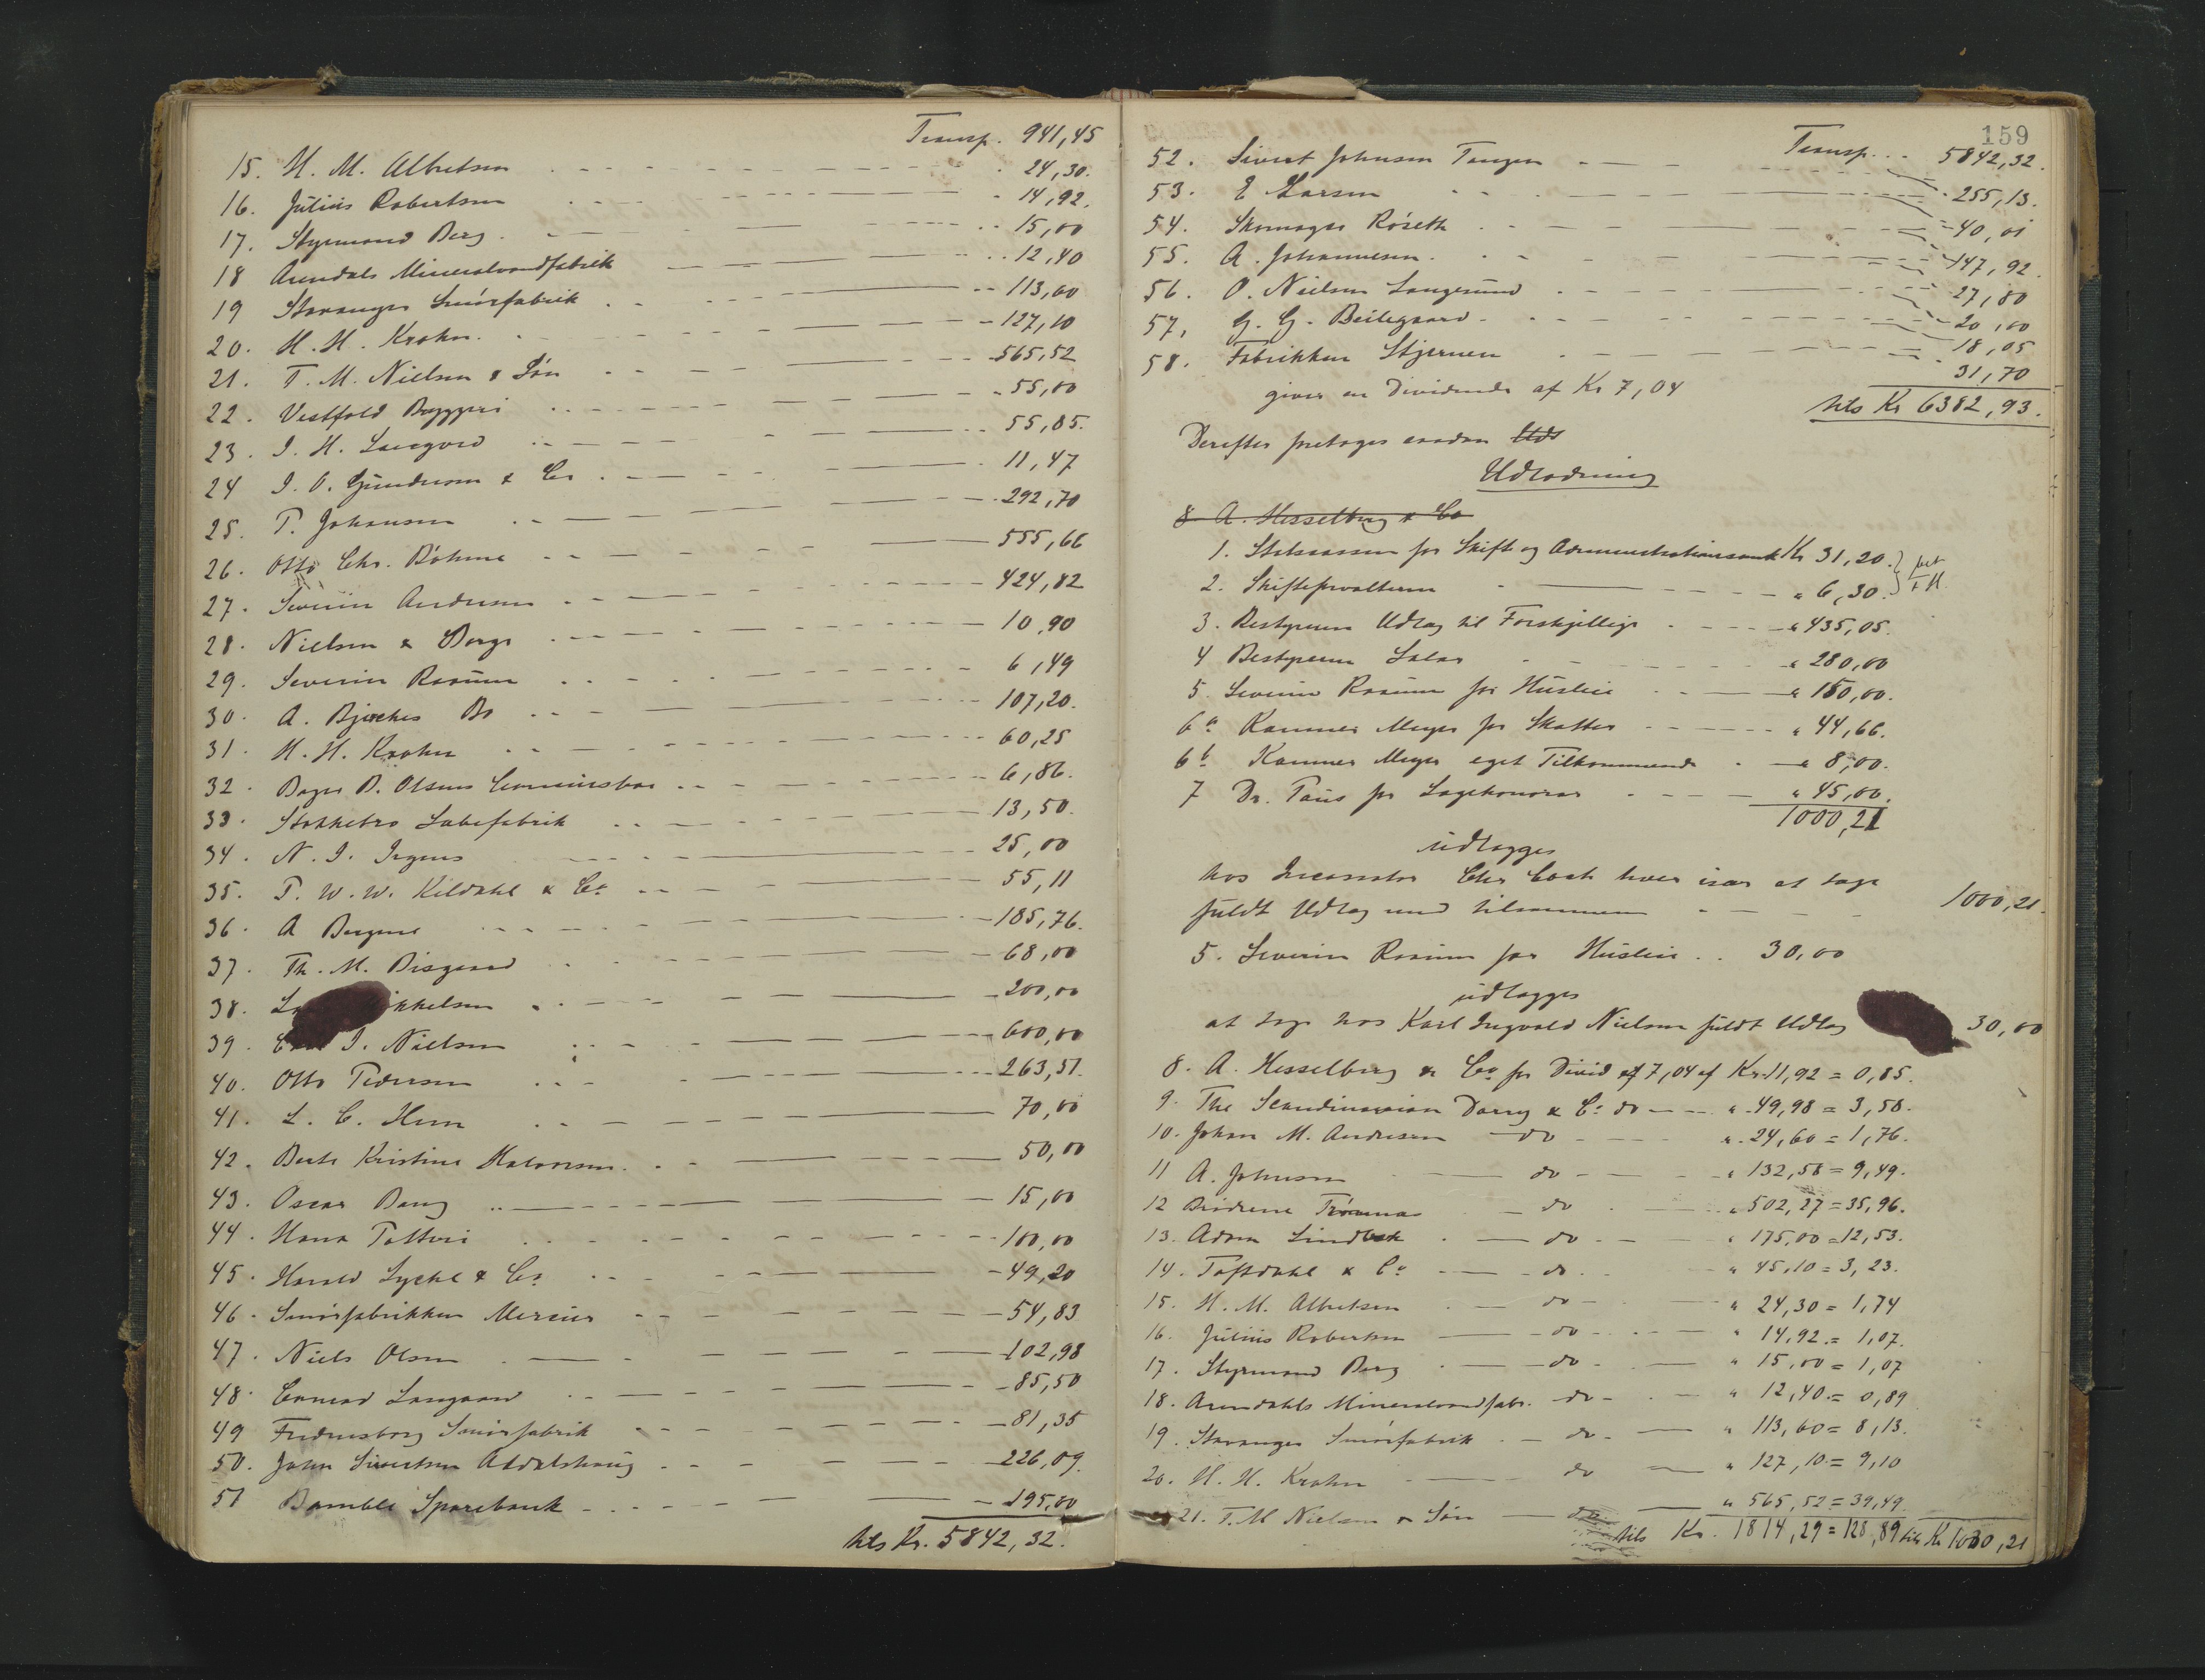 Transp. 941,45
15. H. M. Albretsen 24,30.
16. Julius Robertsen 14,92.
17. Styrmand Berg 15,00
18 Arendals Mineralvandfabrik 12,40
19 Stavanger Smørfabrik 113,60
20. H. H. Krohn 127,10
21. T. M. Nielsen & Søn 565,52
22. Vestfold Byggeri 55,00
23. I. H. 55,85.
24 I. O. Gundersen & Co 11,47
25. T. Johansen 292,70
26. Otto Chr. Böhme 555,66
27. Severin Andersen 424,82
28. Nielsen & Borge 10,90
29. Severin Rosum 6,49
30. A. Bjerckes Bo 107,20.
31. H. H. Krohn 60,25
32. Bager B. Olsens Concursbo 6,86.
33. Stokkebro Sæbefabrik 13,50.
34. N. I. 25,00
35. T. W. W. Kildahl & Co 55,11
36. A 185,76.
37. Th. M. Disgaard 68,00
38. 200,00
39. I. Nielsen 600,00
40. Otto Pedersen 263,51.
41. L. C. 70,00
42. Berte Kristine Halvorsen 50,00
43. Oscar Bang 15,00
44. Hans 100,00
45. Harald Lyche & Co 49,20
46. Smørfabrikken Mercur 54,83
47. Niels Olsen 102,98
48. Conrad Langaard 85,50
49 Fredensborg Smørfabrik 81,35
50. John Sivertsen 226,09.
51 Bamble Sparebank 195,00
tils Kr. 5842,32.
159
Transp. 5842,32.
52. Sivert Johnsen Tangen 255,13.
53. E Larsen 40,01
54. Skomager Röseth 147,92.
55. A. Johannesen 27,80
56. O. Nielsen Langesund 20,00
57. G. G. Beilegaard 18,05
58. Fabrikken Stjernen 31,70
giver en Dividende af Kr 7,04 tils Kr 6382,93.
Derefter foretoges saadan Uds
Udlodning
8. A. Hesselberg & Co
1. Statscassen for Skift og Kr 31,20.
2. Skifteforvalteren " 6,30.
3. Bestyrerens Udlæg til Forskjellige " 435,05.
4 Bestyrerens Salær " 280,00
5. Severin Rosum for Husleie " 150,00.
6a Kæmner Meyer for Skatter " 44,66.
6b Kæmner Meyer eget Tilkommende " 8,00.
7 Dr. Paus for Lægehonorar " 45,00.
1000,21
udlægges
hos Incassator Chr hver især at tage
fuldt Udlæg med tilsammen 1000,21.
5. Severin Rosum for Husleie 30,00
udlægges
at tage hos Karl Ingvald Nielsen fuldt Udlæg 30,00
8. A. Hesselberg & Co for Divid af 7,04 af Kr. 11,92 = 0,85.
9. The Scandinavian & Co do " 49,98 = 3,58.
10. Johan M. Andresen do " 24,60 = 1,76.
11 A. Johnsen do " 132,58 = 9,49.
12 Brødrene do " 502,27 = 35,96.
13. Adam do " 175,00 = 12,53.
14. Toftdahl & Co do " 45,10 = 3,23.
15. H. M. Albretsen do " 24,30 = 1,74
16. Julius Robertsen do " 14,92 = 1,07.
17. Styrmand Berg do " 15,00 = 1,07
18. Arendahls Mineralvandfabr. do " 12,40 = 0,89
19. Stavanger Smørfabrik do " 113,60 = 8,13.
20. H. H. Krohn do " 127,10 = 9,10
21. T. M Nielsen & Søn do " 565,52 = 39,49.
tils Kr. 1814,29 = 128,89 tils Kr 1030,21